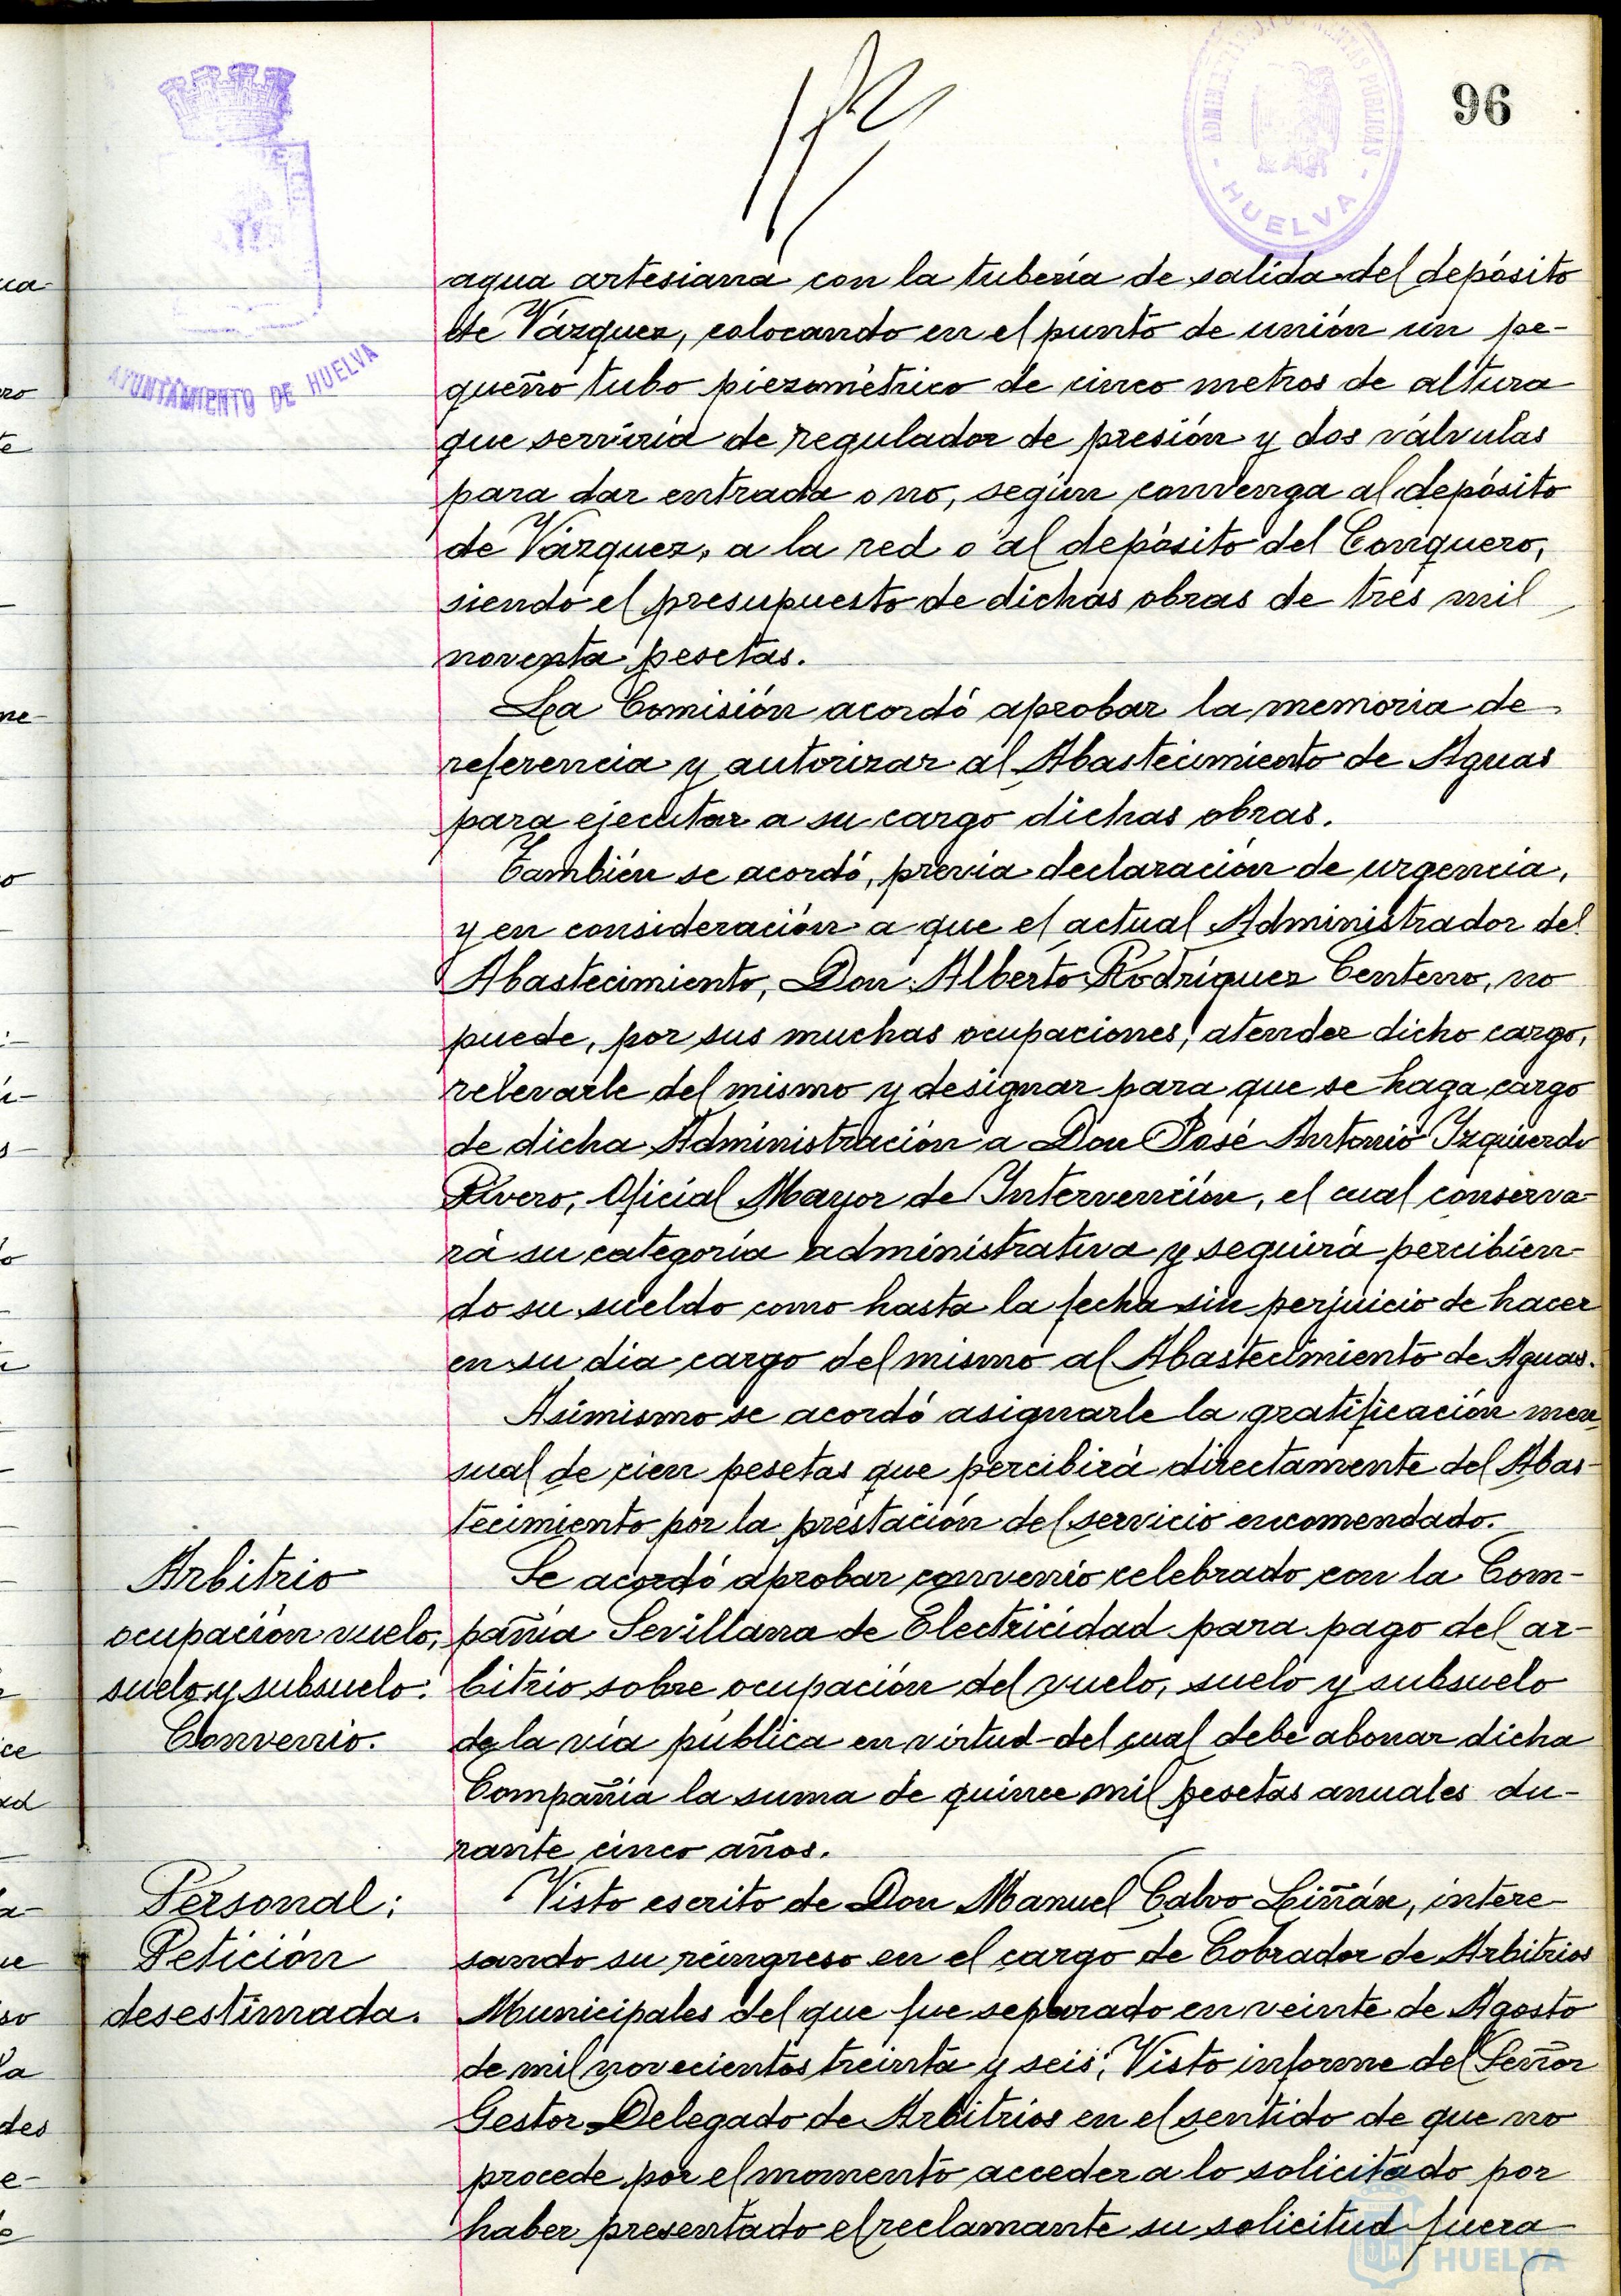 96
ADMINISTRACION DE RENTAS PUBLICAS
HUELVA
AYUNTAMIENTO DE HUELVA
agua artesiana con la tubería de salida del depósito
de Vázquez, colocando en el punto de unión un pe-
queño tubo piezométrico de cinco metros de altura
que serviría de regulador de presión y dos válvulas
para dar entrada o no, según convenga al depósito
de Vázquez, a la red o al depósito del Conquero,
siendo el presupuesto de dichas obras de tres mil
noventa pesetas.
La Comisión acordó aprobar la memoria de
referencia y autorizar al Abastecimiento de Aguas
para ejecutar a su cargo dichas obras.
También se acordó, previa declaración de urgencia,
y en consideración a que el actual Administrador del
Abastecimiento, Don Alberto Rodríguez Centeno, no
puede, por sus muchas ocupaciones, atender dicho cargo,
relevarle del mismo y designar para que se haga cargo
de dicha Administración a Don José Antonio Izquierdo
Rivero, Oficial Mayor de Intervención, el cual conserva-
rá su categoría administrativa y seguirá percibien-
do su sueldo como hasta la fecha sin perjuicio de hacer
en su día cargo del mismo al Abastecimiento de Aguas.
Asimismo se acordó asignarle la gratificación men-
sual de cien pesetas que percibirá directamente del Abas-
tecimiento por la prestación del servicio encomendado.
Arbitrio
ocupación vuelo,
suelo y subsuelo:
Convenio.
Se acordó aprobar convenio celebrado con la Com-
pañía Sevillana de Electricidad para pago del ar-
bitrio sobre ocupación del vuelo, suelo y subsuelo
de la vía pública en virtud del cual debe abonar dicha
Compañía la suma de quince mil pesetas anuales du-
rante cinco años.
Personal:
Petición
desestimada.
Visto escrito de Don Manuel Calvo Liñán, intere-
sando su reingreso en el cargo de Cobrador de Arbitrios
Municipales del que fue separado en veinte de Agosto
de mil novecientos treinta y seis; Visto informe del Señor
Gestor Delegado de Arbitrios en el sentido de que no
procede por el momento acceder a lo solicitado por
haber presentado el reclamante su solicitud fuera
HUELVA